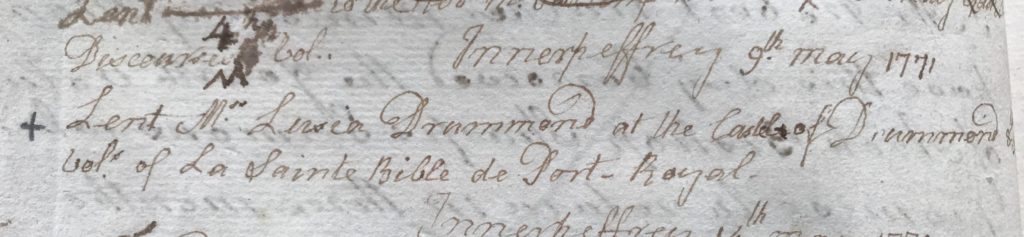 Lent
Discourses 4th Vol. Innerpeffrey 9th may 1771
+ Lent Mrs Lusea Drummond at the Castle of Drummond
vols of La Sainte Bible de Port-Royal.
Innerpeffrey th may 1771